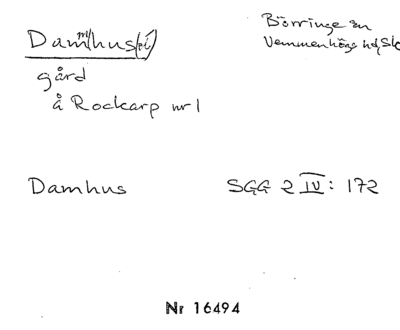 Dam/m/hus(et)
Börringe sn
Vemmenhögs hd, Sk
gård
å Rockarp nr 1
Damhus
SGG 2 IV: 172
Nr 16494